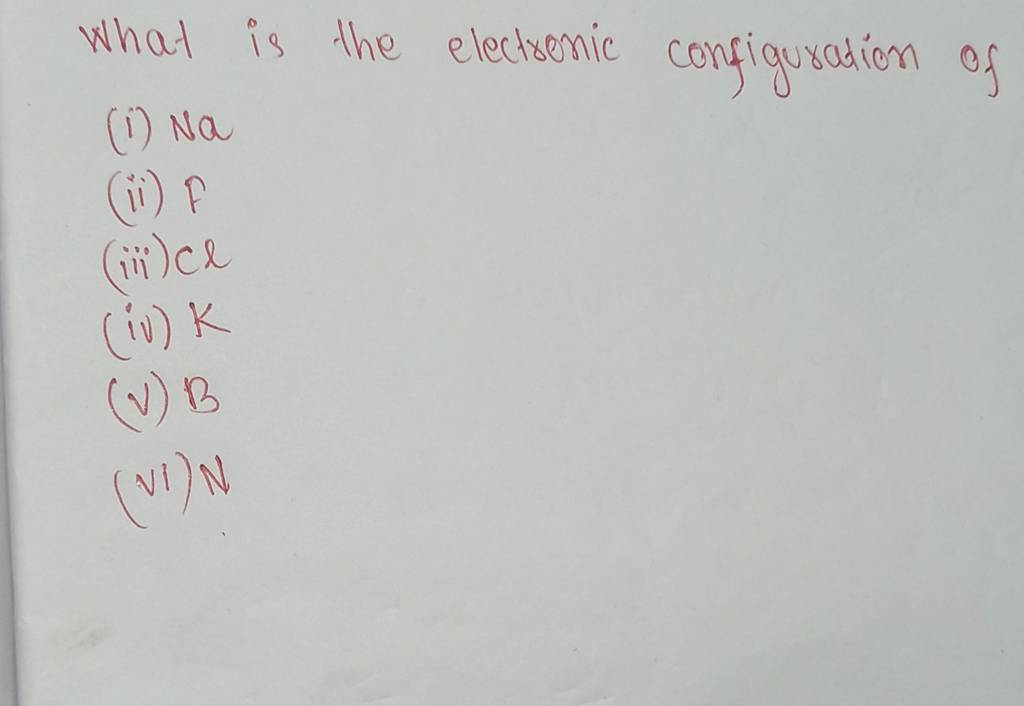 What is the electronic configuration of
(i) Na
(ii) P
(iii) Cl
(iv) K
(v) B
(vi) N